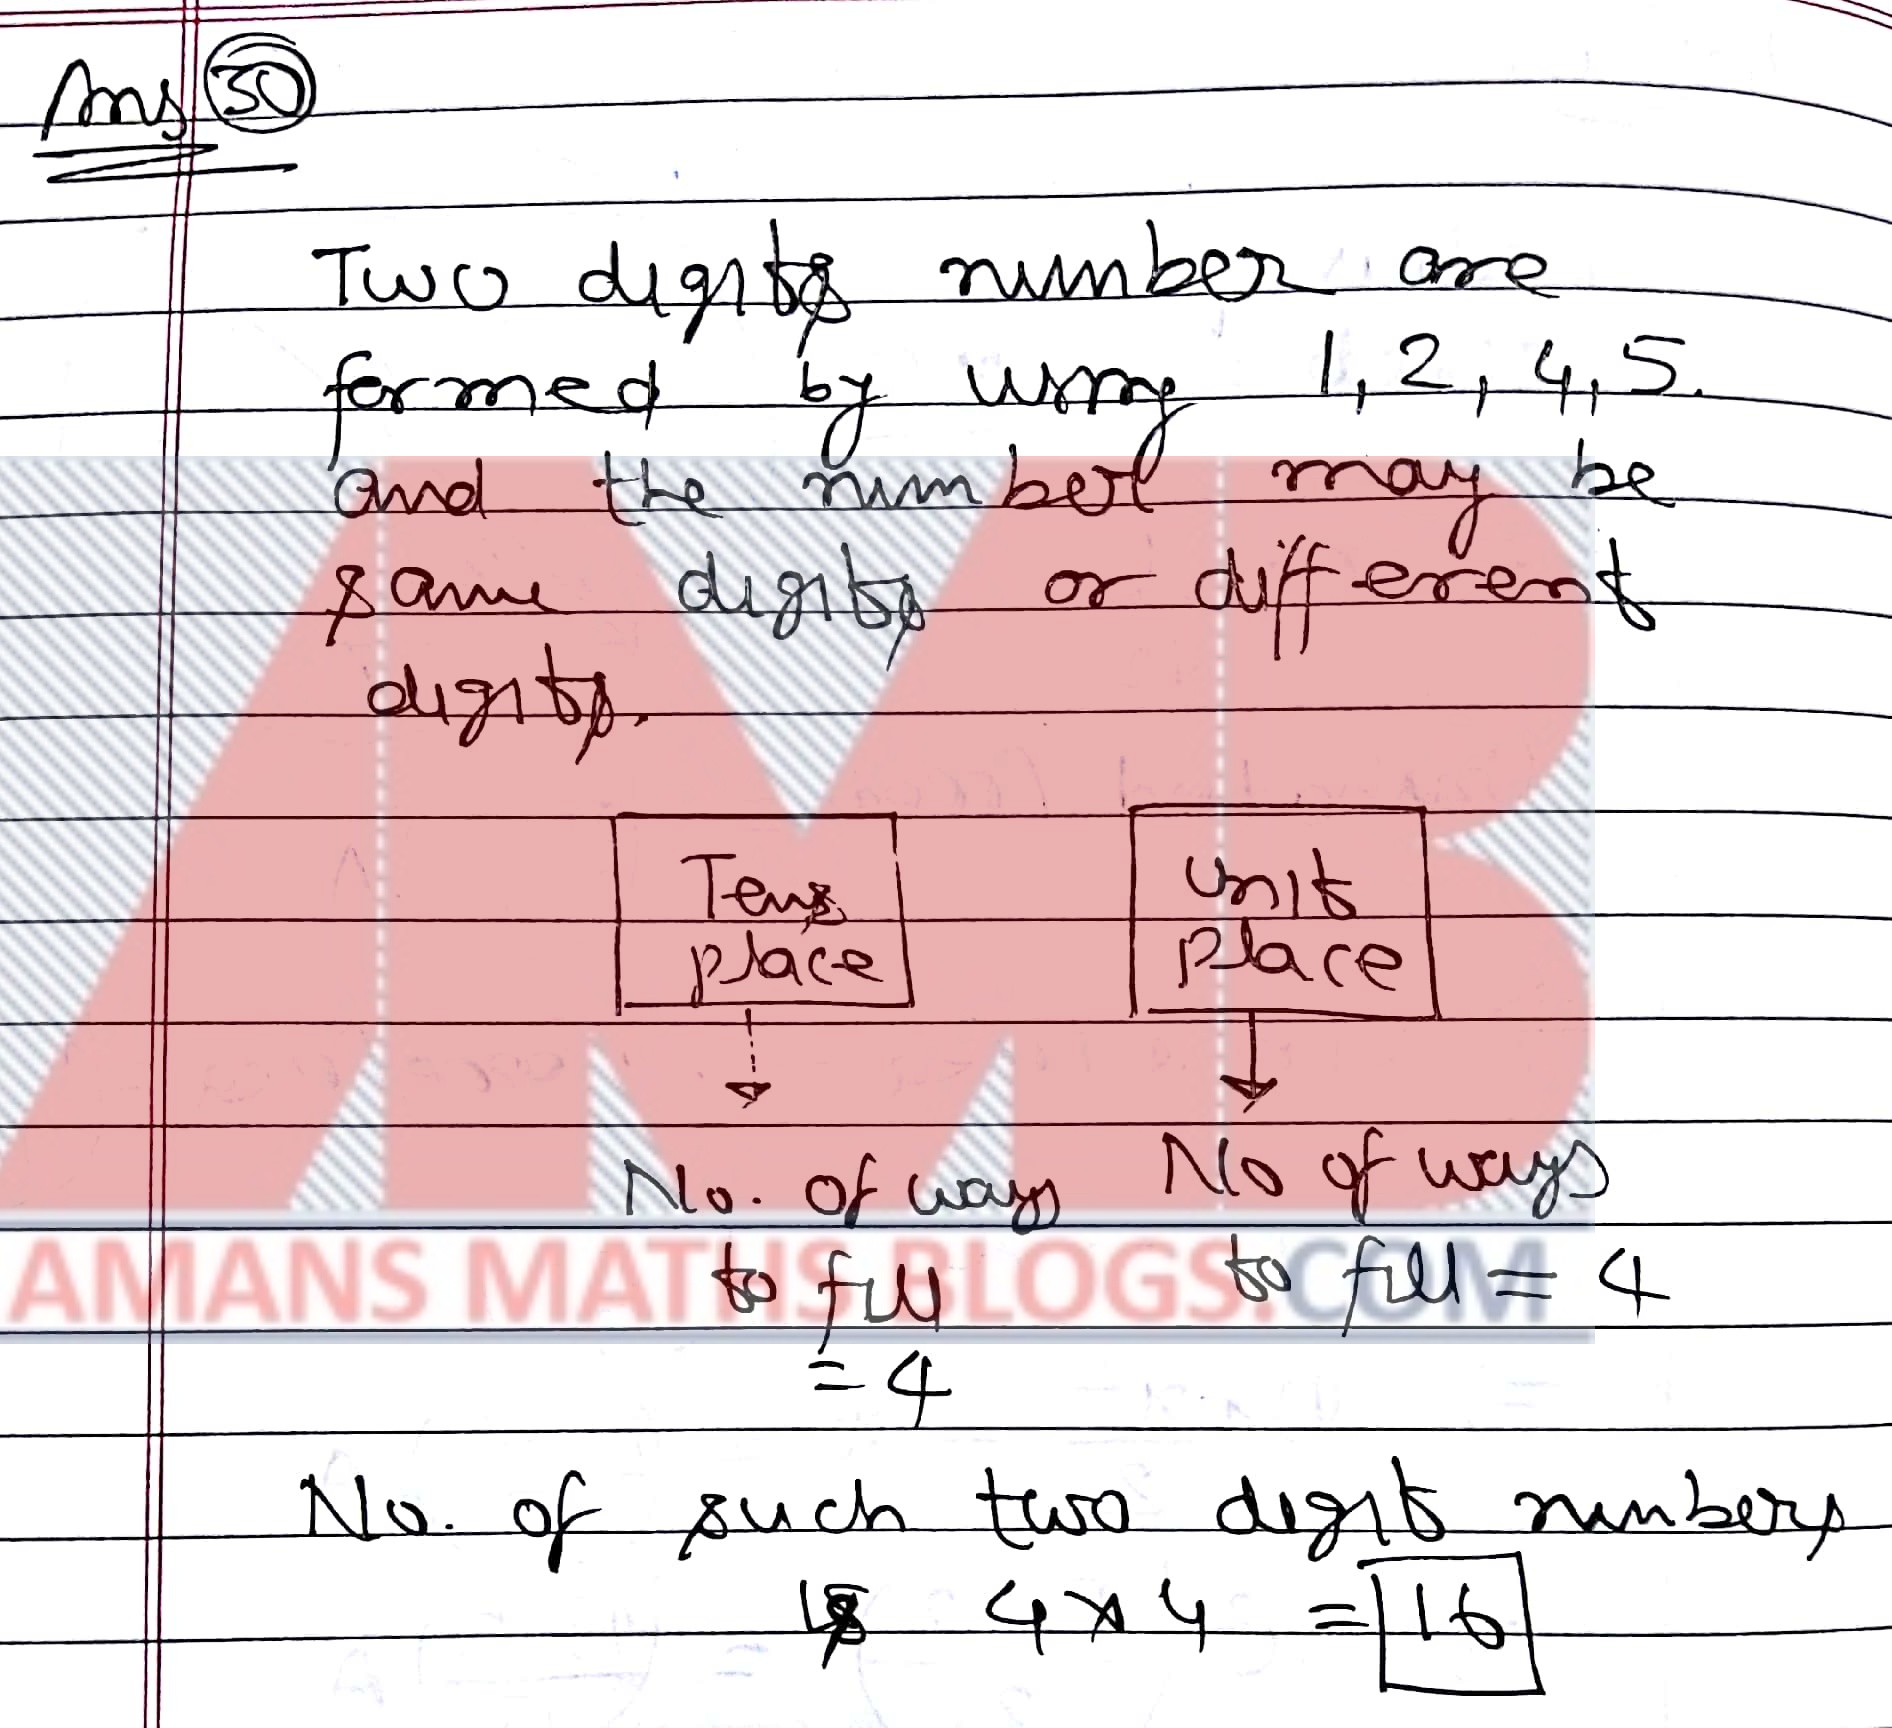 Ans 30
Two digits number are
formed by using 1, 2, 4, 5.
and the number may be
same digits or different
digits.
Tens
place
Unit
Place
No. of ways
to fill
= 4
No of ways
to fill = 4
AMANS MATHS BLOGS.COM
No. of such two digit numbers
is 4 × 4 = 16